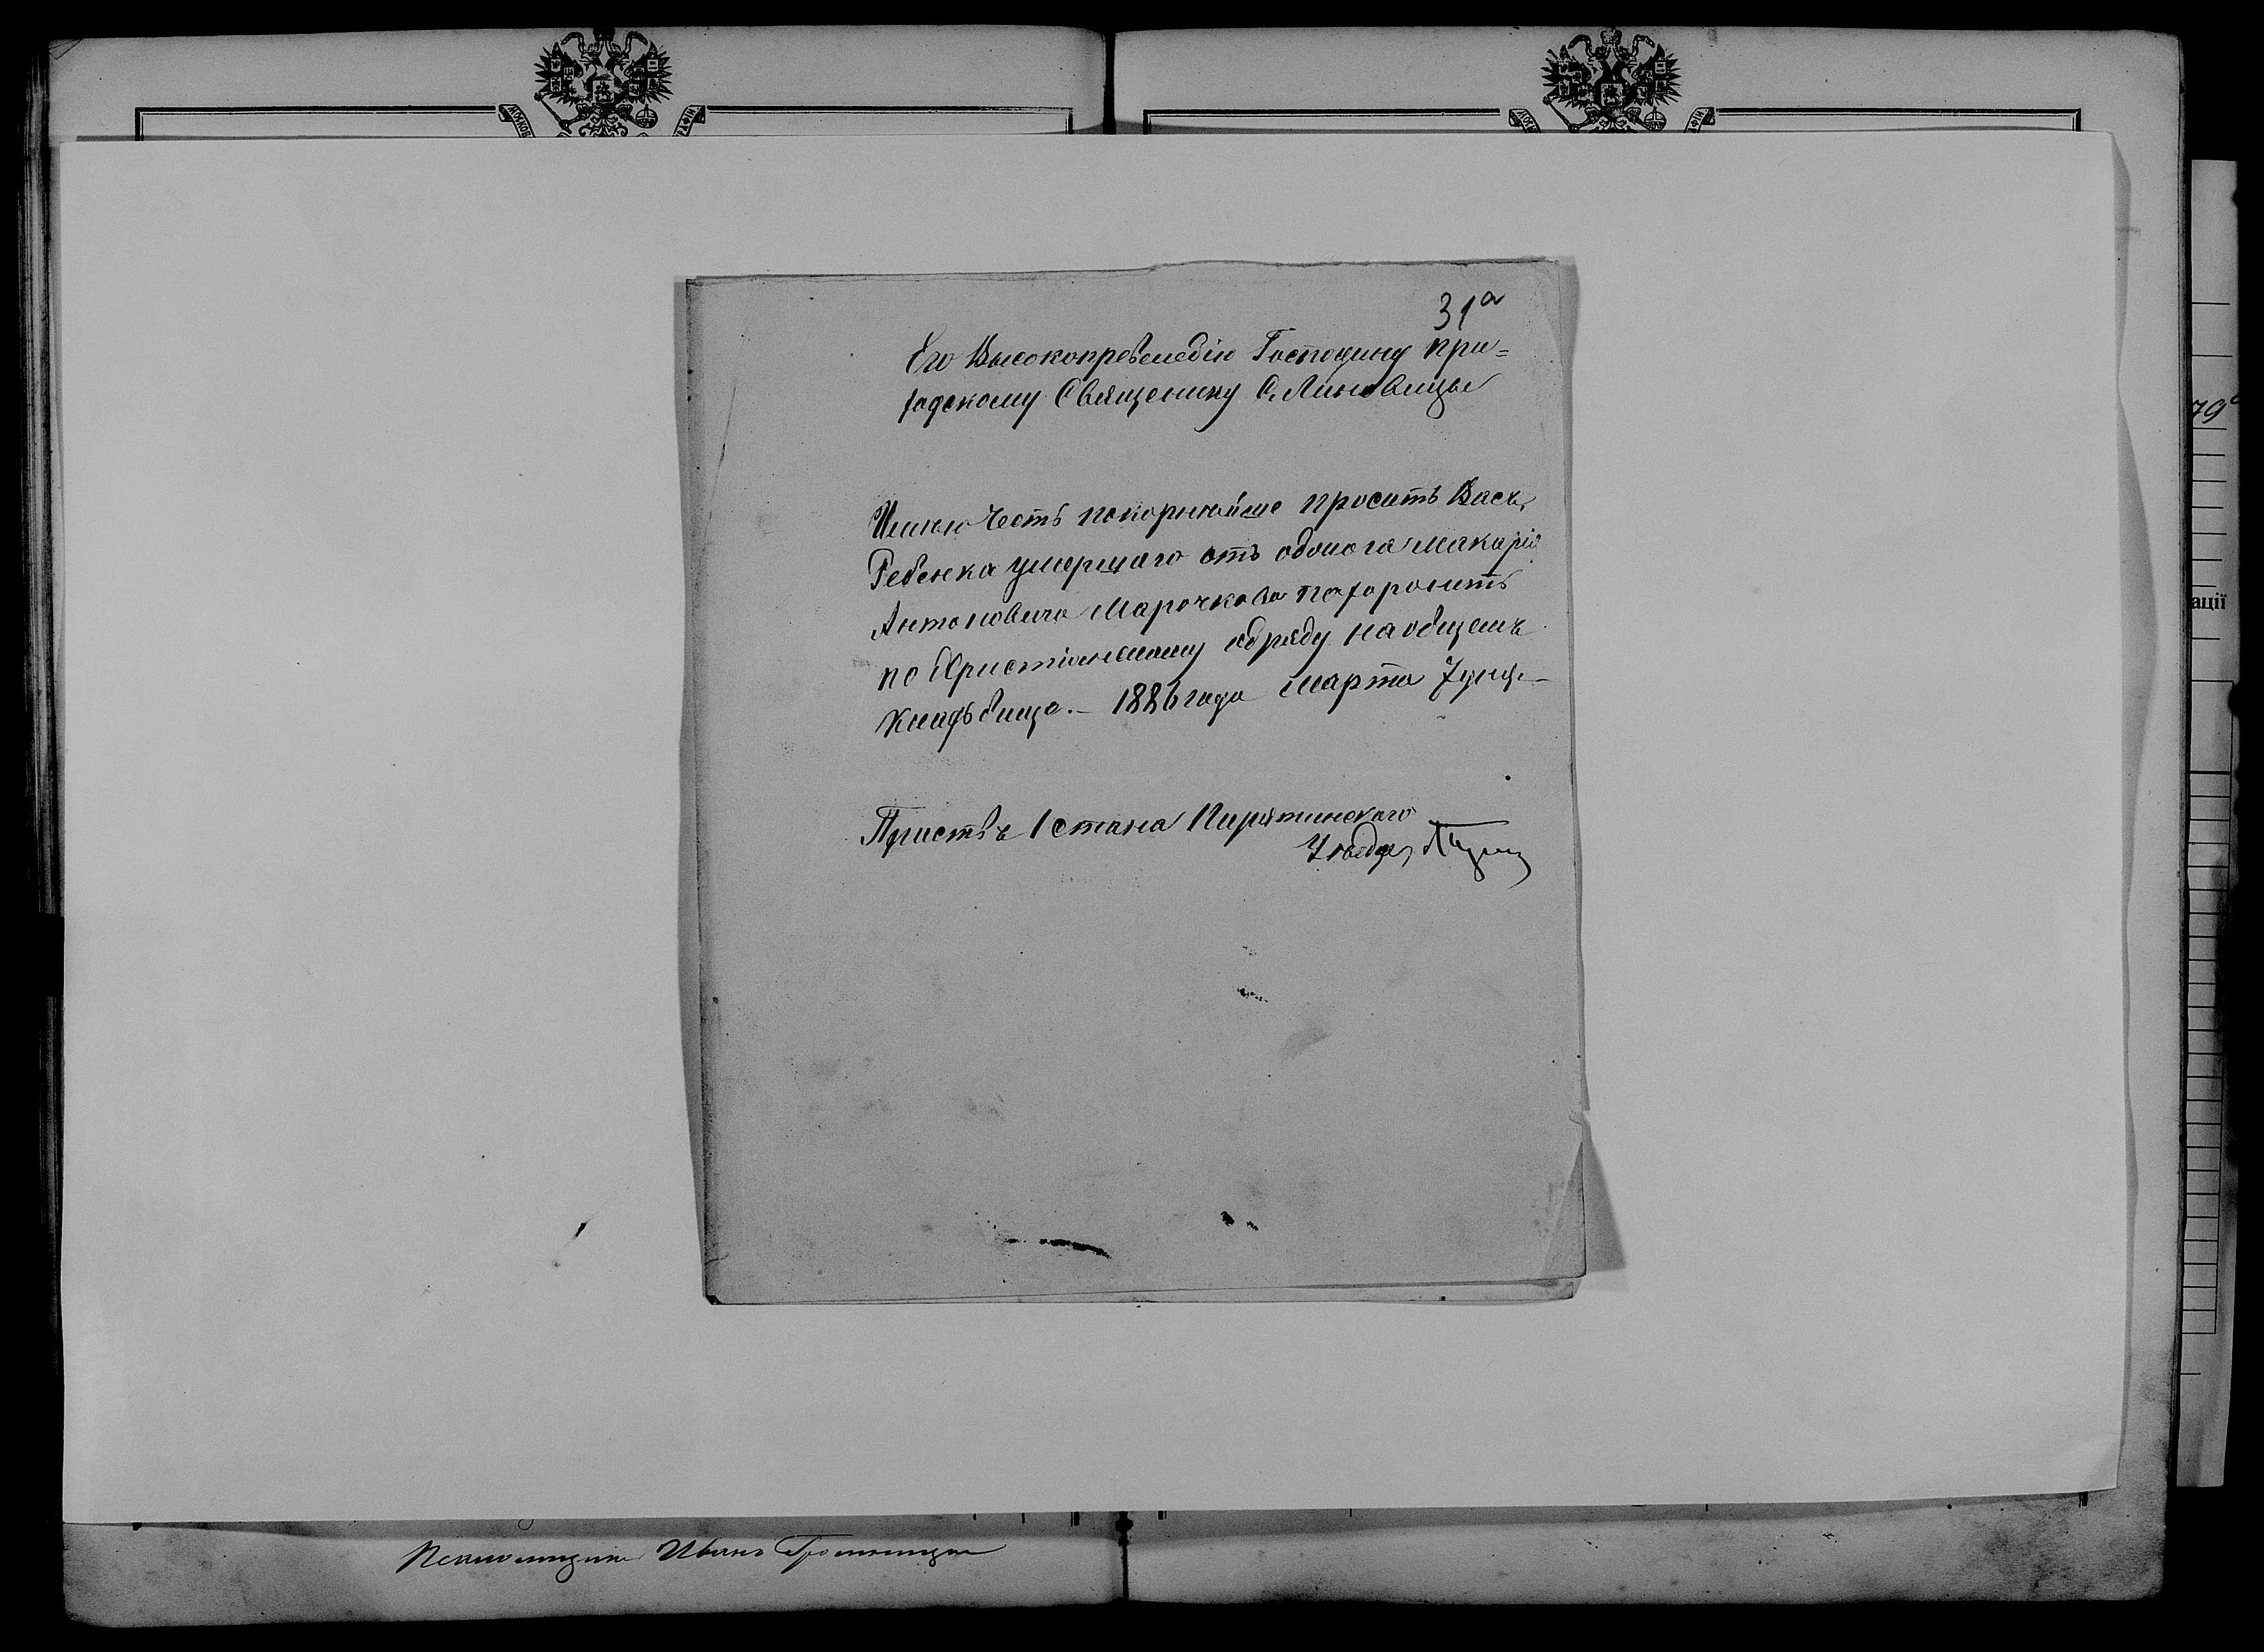 31а
Его Высокопревелебію Господину при=
ходскому Священику С. Линовицы
Имѣю честь покорнѣйше просить Васъ,
Ребенка умершаго отъ обжога Макарія
Антоновича Марочкова похоронить
по Христіанскому обряду на общемъ
кладбище. — 1886 года Марта 7 дня. —
Приставъ 1 стана Пирятинского
Уѣзда
Псаломщикъ Иванъ
79
ації